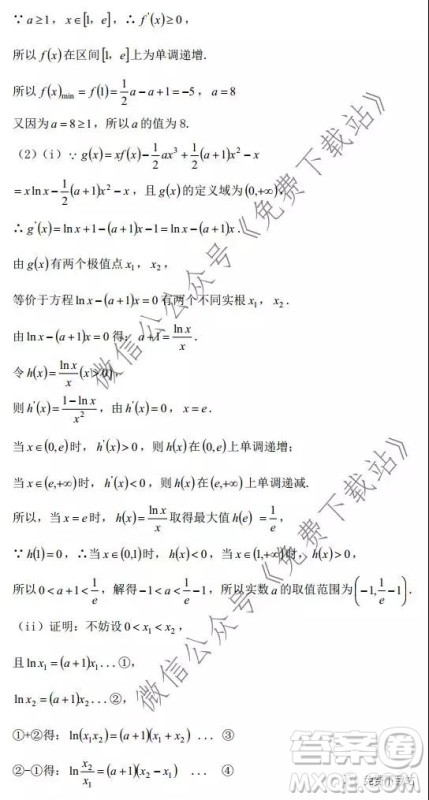 ∵ a≥1，x∈[1，e]，∴ f'(x)≥0，
所以 f(x)在区间[1，e]上为单调递增.
所以 f(x)min = f(1) = 1/2 a − a + 1 = −5，a = 8
又因为 a = 8 ≥ 1，所以 a 的值为 8.
（2）（i）∵ g(x) = xf(x) − 1/2 ax³ + 1/2 (a+1)x² − x
= x ln x − 1/2 (a+1)x² − x，且 g(x)的定义域为(0,+∞)，
∴ g'(x) = ln x + 1 − (a+1)x − 1 = ln x − (a+1)x.
由 g(x)有两个极值点 x₁，x₂，
等价于方程 ln x − (a+1)x = 0 有两个不同实根 x₁，x₂.
由 ln x − (a+1)x = 0 得：a+1 = ln x / x.
令 h(x) = ln x / x (x>0)，
则 h'(x) = (1 − ln x) / x²，由 h'(x) = 0，x = e.
当 x∈(0,e)时，h'(x) > 0，则 h(x)在(0,e)上单调递增；
当 x∈(e,+∞)时，h'(x) < 0，则 h(x)在(e,+∞)上单调递减.
所以，当 x = e 时，h(x) = ln x / x 取得最大值 h(e) = 1/e，
∵ h(1) = 0，∴ 当 x∈(0,1)时，h(x) < 0，当 x∈(1,+∞)时，h(x) > 0，
所以 0 < a+1 < 1/e，解得 −1 < a < 1/e − 1，所以实数 a 的取值范围为 (−1, 1/e − 1).
（ii）证明：不妨设 0 < x₁ < x₂，
且 ln x₁ = (a+1)x₁ … ①，
ln x₂ = (a+1)x₂ … ②，
①+②得：ln(x₁x₂) = (a+1)(x₁ + x₂) … ③
②−①得：ln x₂/x₁ = (a+1)(x₂ − x₁) … ④
微信公众号《免费下载站》
微信公众号《免费下载站》
答案圈
MXQE.COM